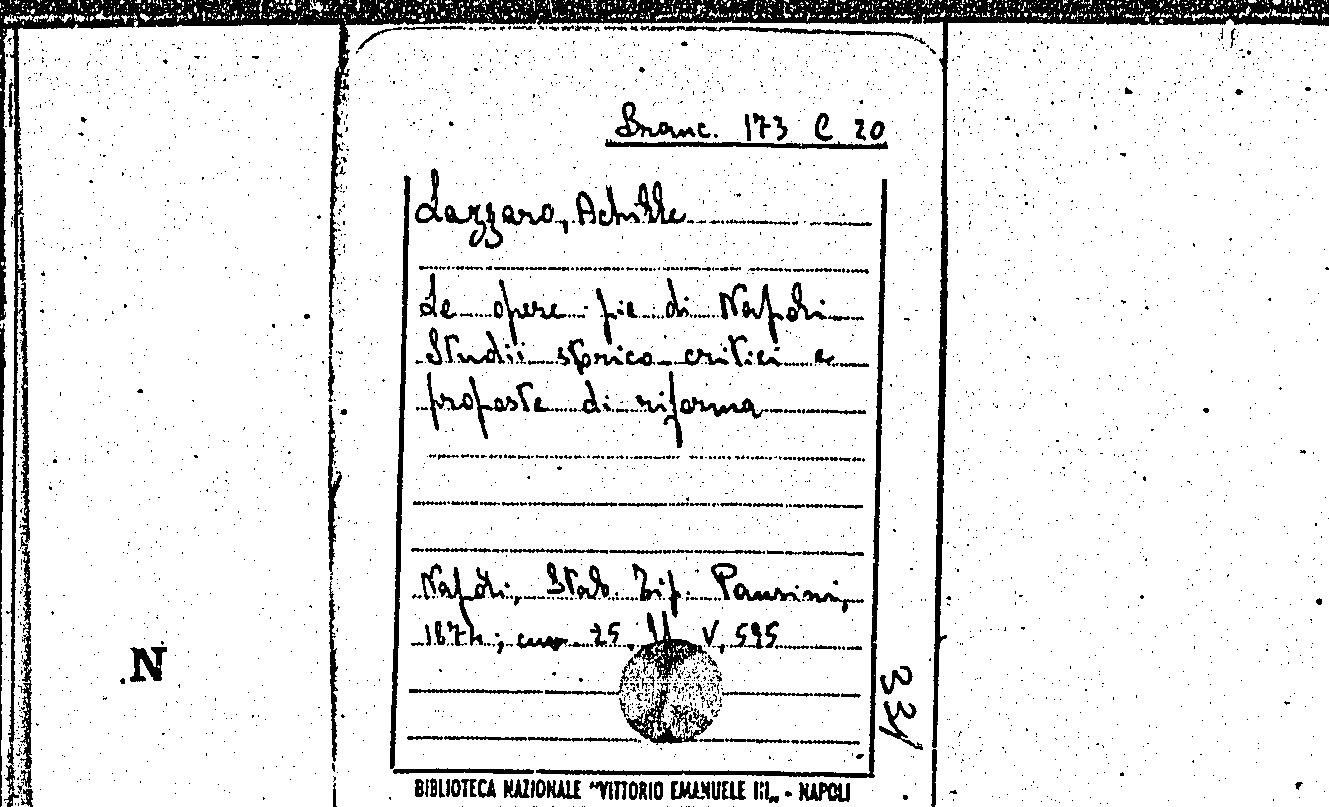 Branc. 173 C 20
Lazzaro, Achille
Le opere pie di Napoli
Studii storico critici e
proposte di riforma
Napoli, Stab. Tip. Pansini,
187h; cm 25 V, 595
331
N
BIBLIOTECA NAZIONALE "VITTORIO EMANUELE III„ - NAPOLI